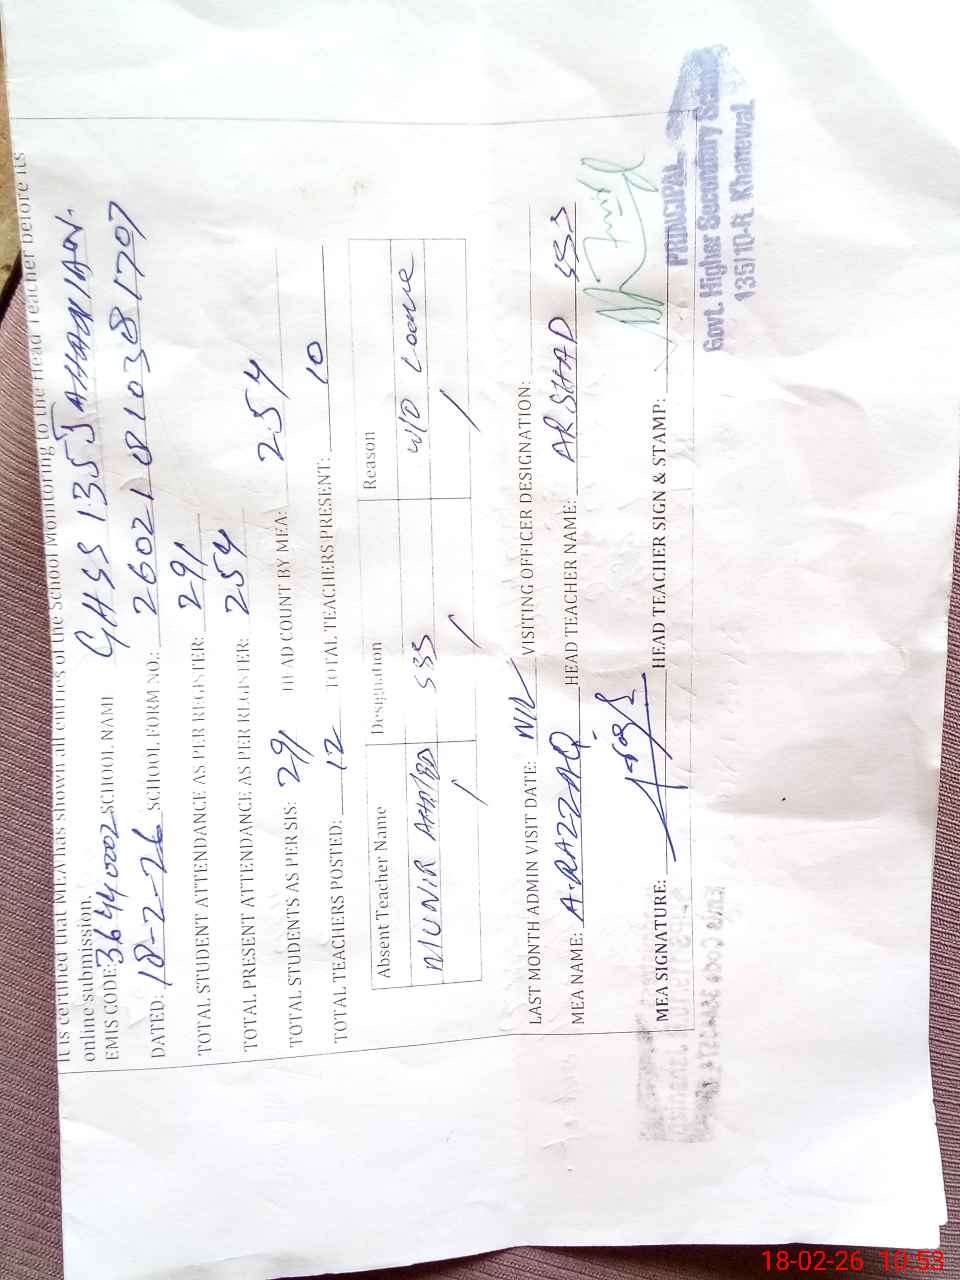 It is certified that MEA has shown all entries of the School Monitoring to the Head Teacher before its
online submission.
EMIS CODE: 36440002 SCHOOL NAME GHSS 135 JAHANIAN
DATED: 18-2-26 SCHOOL FORM NO.: 26021810381707
TOTAL STUDENT ATTENDANCE AS PER REGISTER: 291
TOTAL PRESENT ATTENDANCE AS PER REGISTER: 254
TOTAL STUDENTS AS PER SIS: 291 HEAD COUNT BY MEA: 254
TOTAL TEACHERS POSTED: 12 TOTAL TEACHERS PRESENT: 10
Absent Teacher Name Designation Reason
MUNIR AHMED SSS W/O Leave
LAST MONTH ADMIN VISIT DATE: NIL VISITING OFFICER DESIGNATION:
MEA NAME: A.RAZZAQ HEAD TEACHER NAME: ARSHAD SSS
MEA SIGNATURE: HEAD TEACHER SIGN & STAMP:
PRINCIPAL
Govt. Higher Secondary School
135/10-R Khanewal
18-02-26 10:53